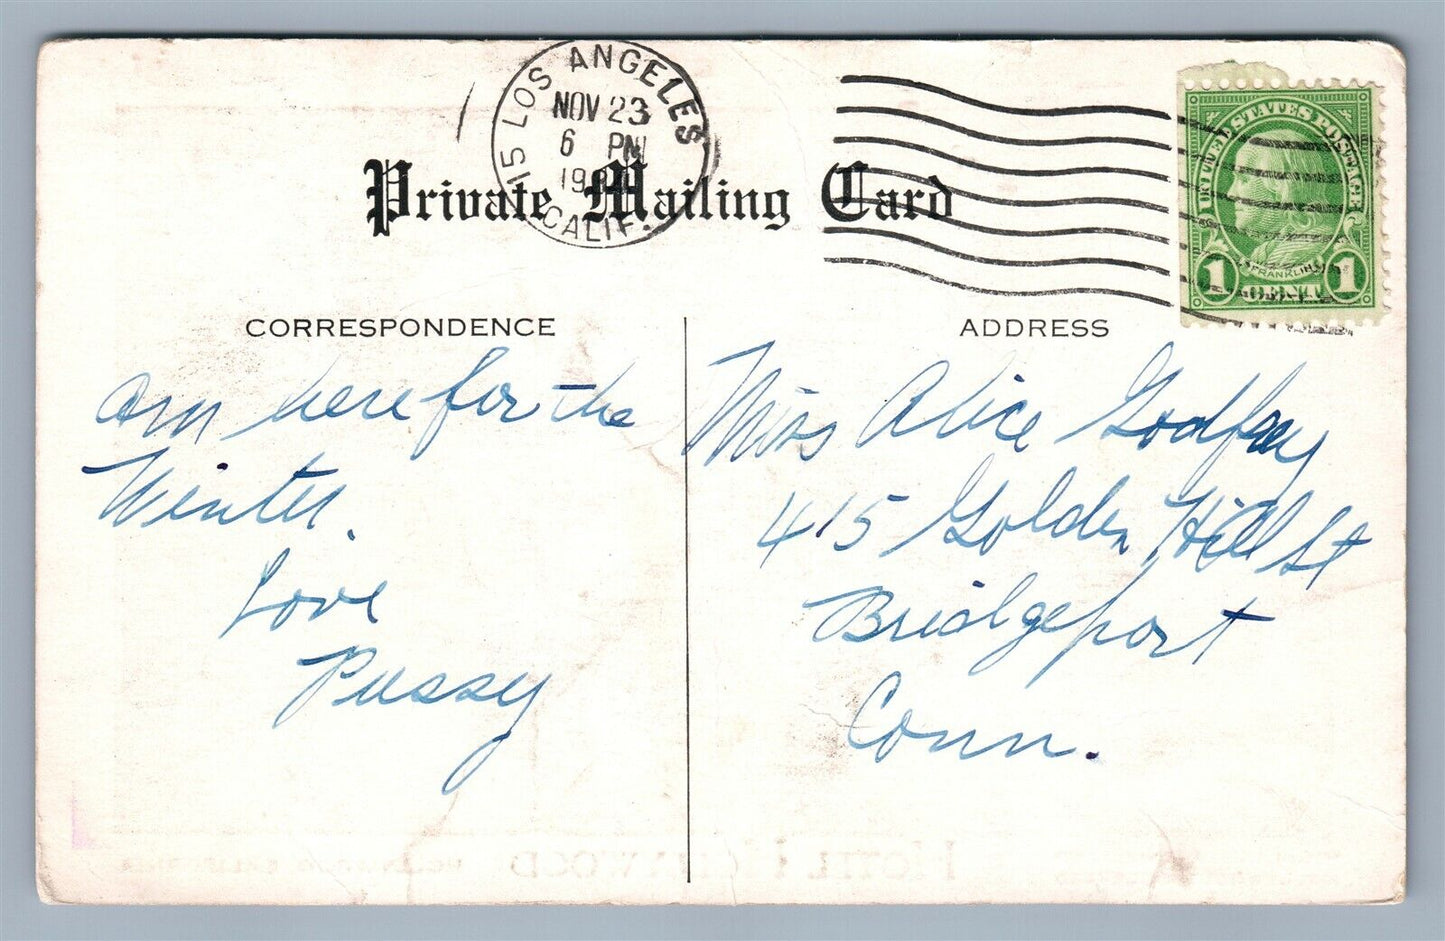 15 LOS ANGELES
NOV 23
6 PM
CALIF.
Private Mailing Card
UNITED STATES POSTAGE
FRANKLIN
1 CENT 1
CORRESPONDENCE
Am here for the
Winter.
Love
Pussy
ADDRESS
Miss Alice Godfrey
415 Golden Hill St
Bridgeport
Conn.
HOTEL HOLLYWOOD HOLLYWOOD CALIFORNIA